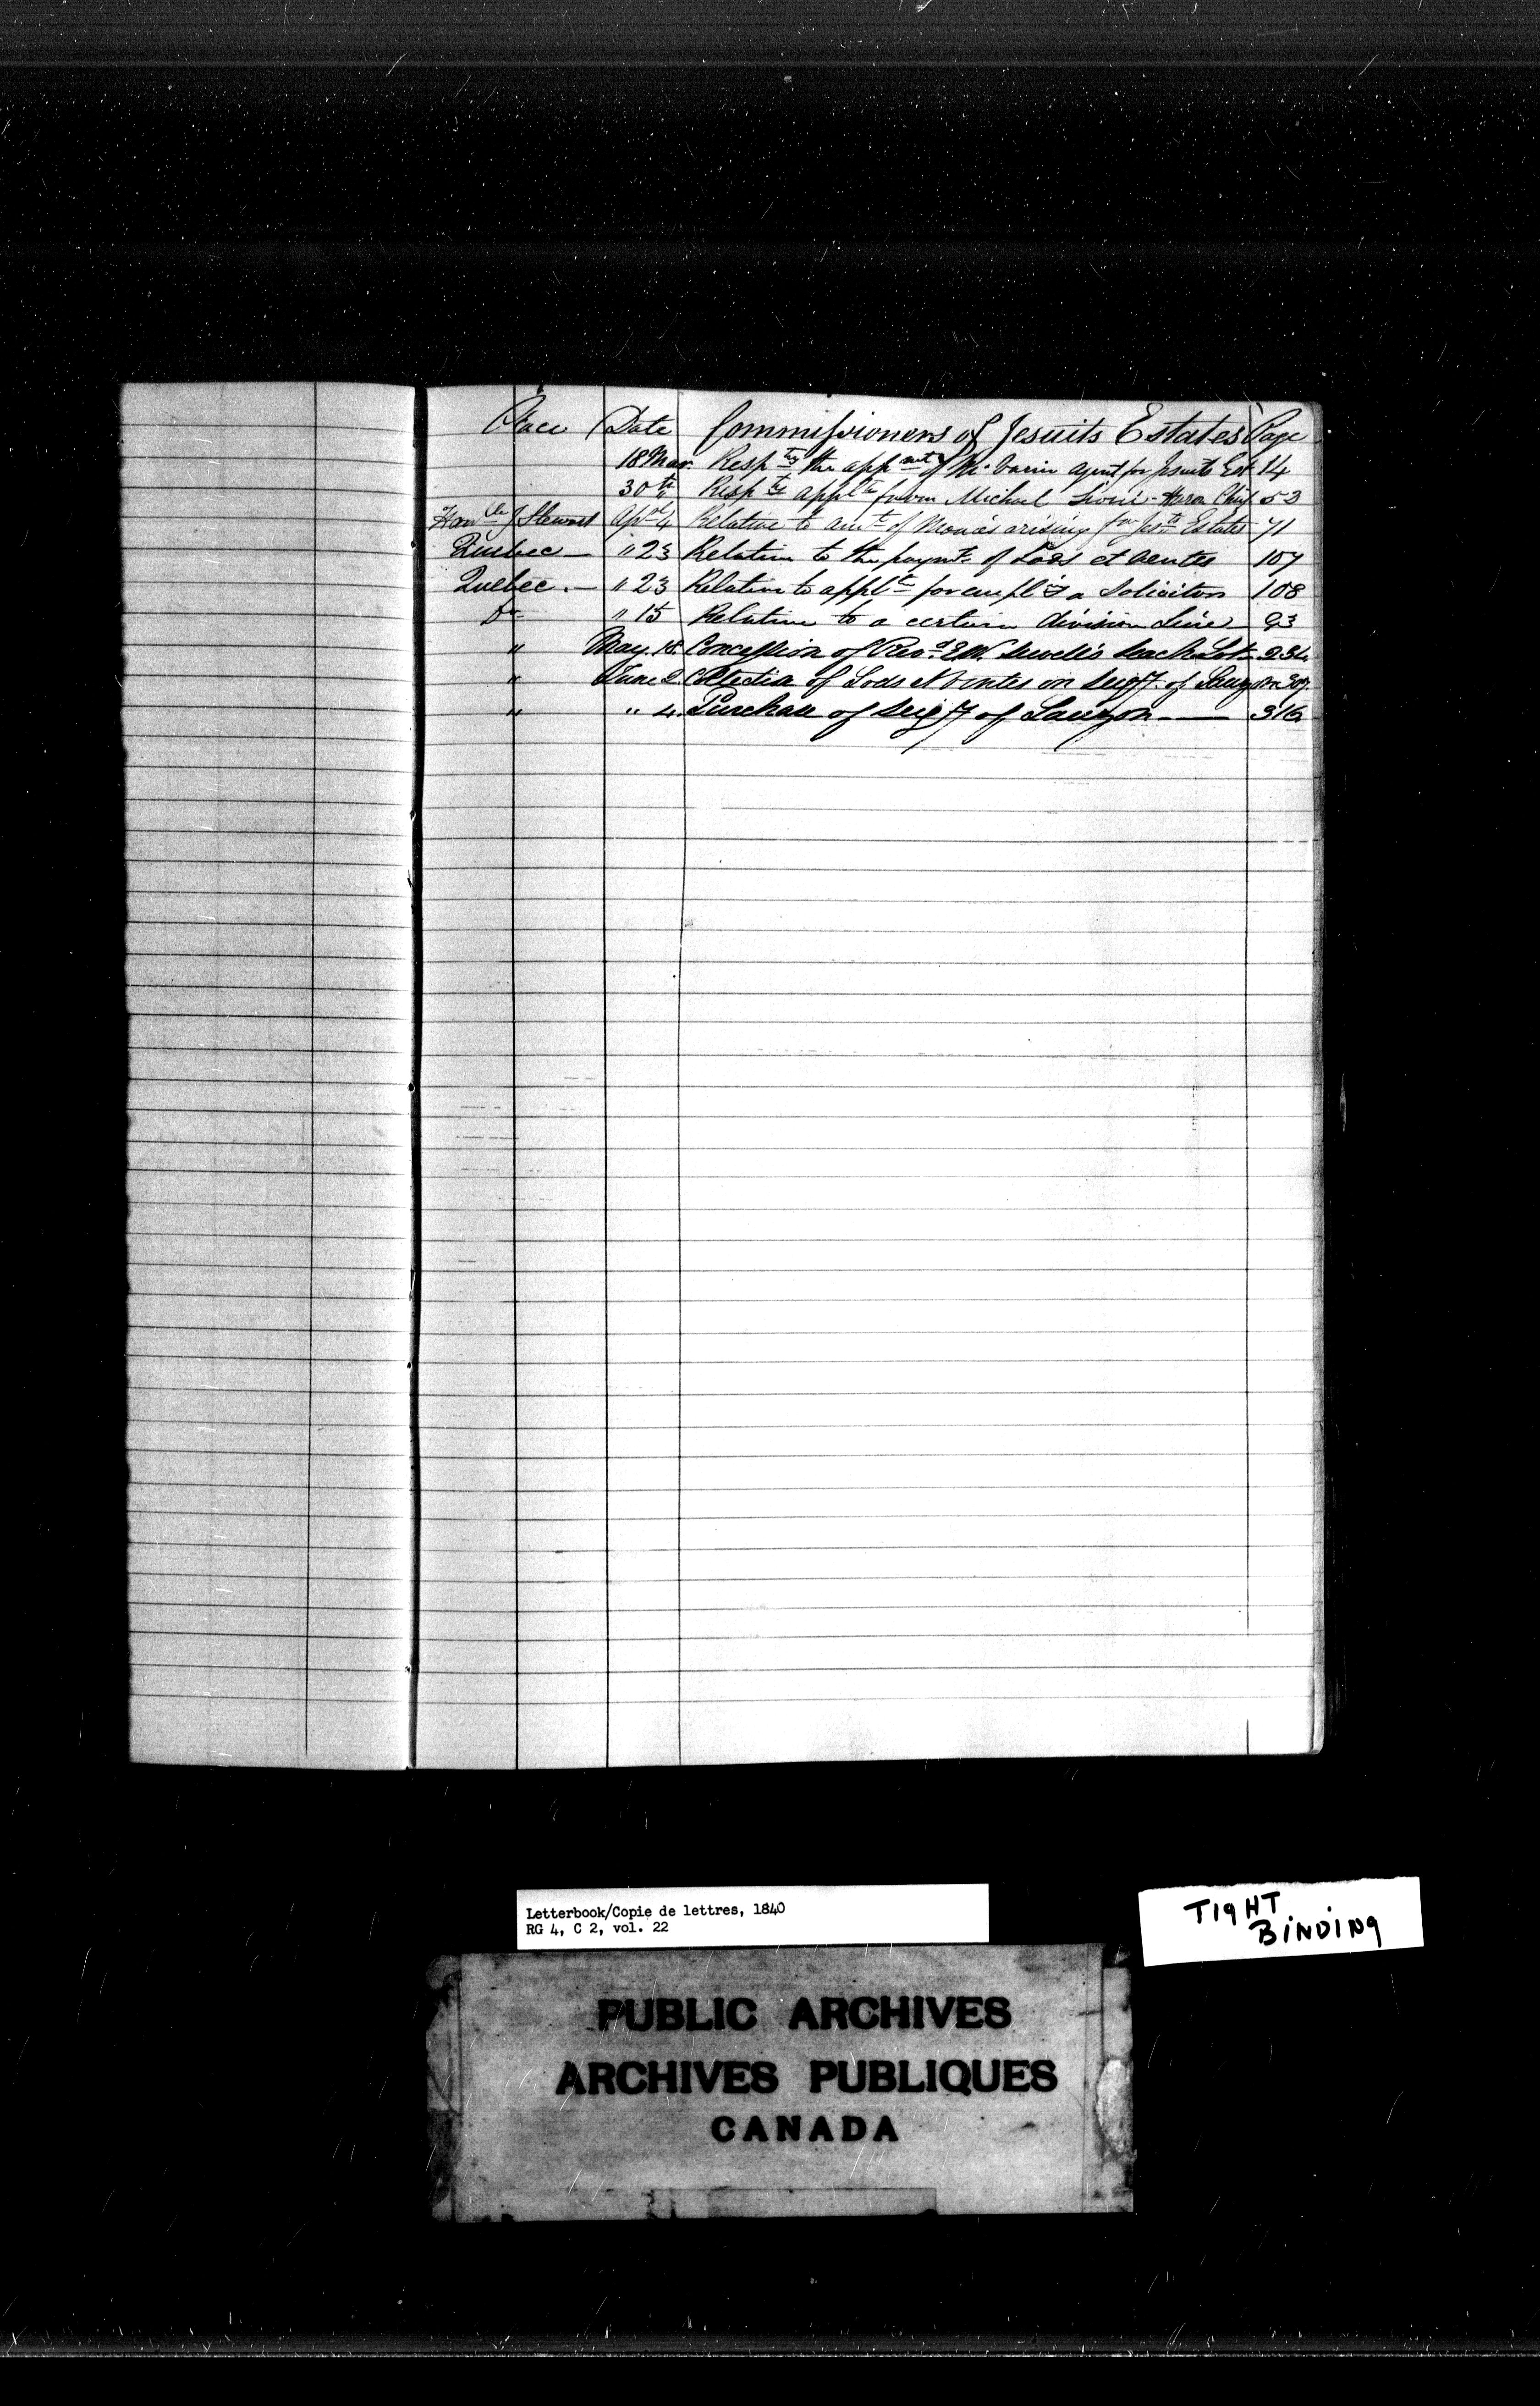 Place Date Commissioners of Jesuits Estates Page
18 Mar. Resptg the appmt of Mr Varin agent for Jesuits Est 14
30th Resptg applt from Michael Sioui - Huron Chief 53
Honble J Stewart Apl 4 Relative to amt of Monies arising fm Jests Estates 71
Quebec — " 23 Relative to the paymt of Lods et Ventes 107
Quebec. — " 23 Relative to applt for emplg a Solicitor 108
Do " 15 Relative to a certain division Line 93
" May 18 Concession of Revd E W. Sewell's Beach Lot 234
" June 2 Collection of Lods et Ventes in Seigy. of Lauzon 307.
" " 4. Purchase of Seigy of Lauzon — 316
Letterbook/Copie de lettres, 1840
RG 4, C 2, vol. 22
TIGHT
BINDING
PUBLIC ARCHIVES
ARCHIVES PUBLIQUES
CANADA